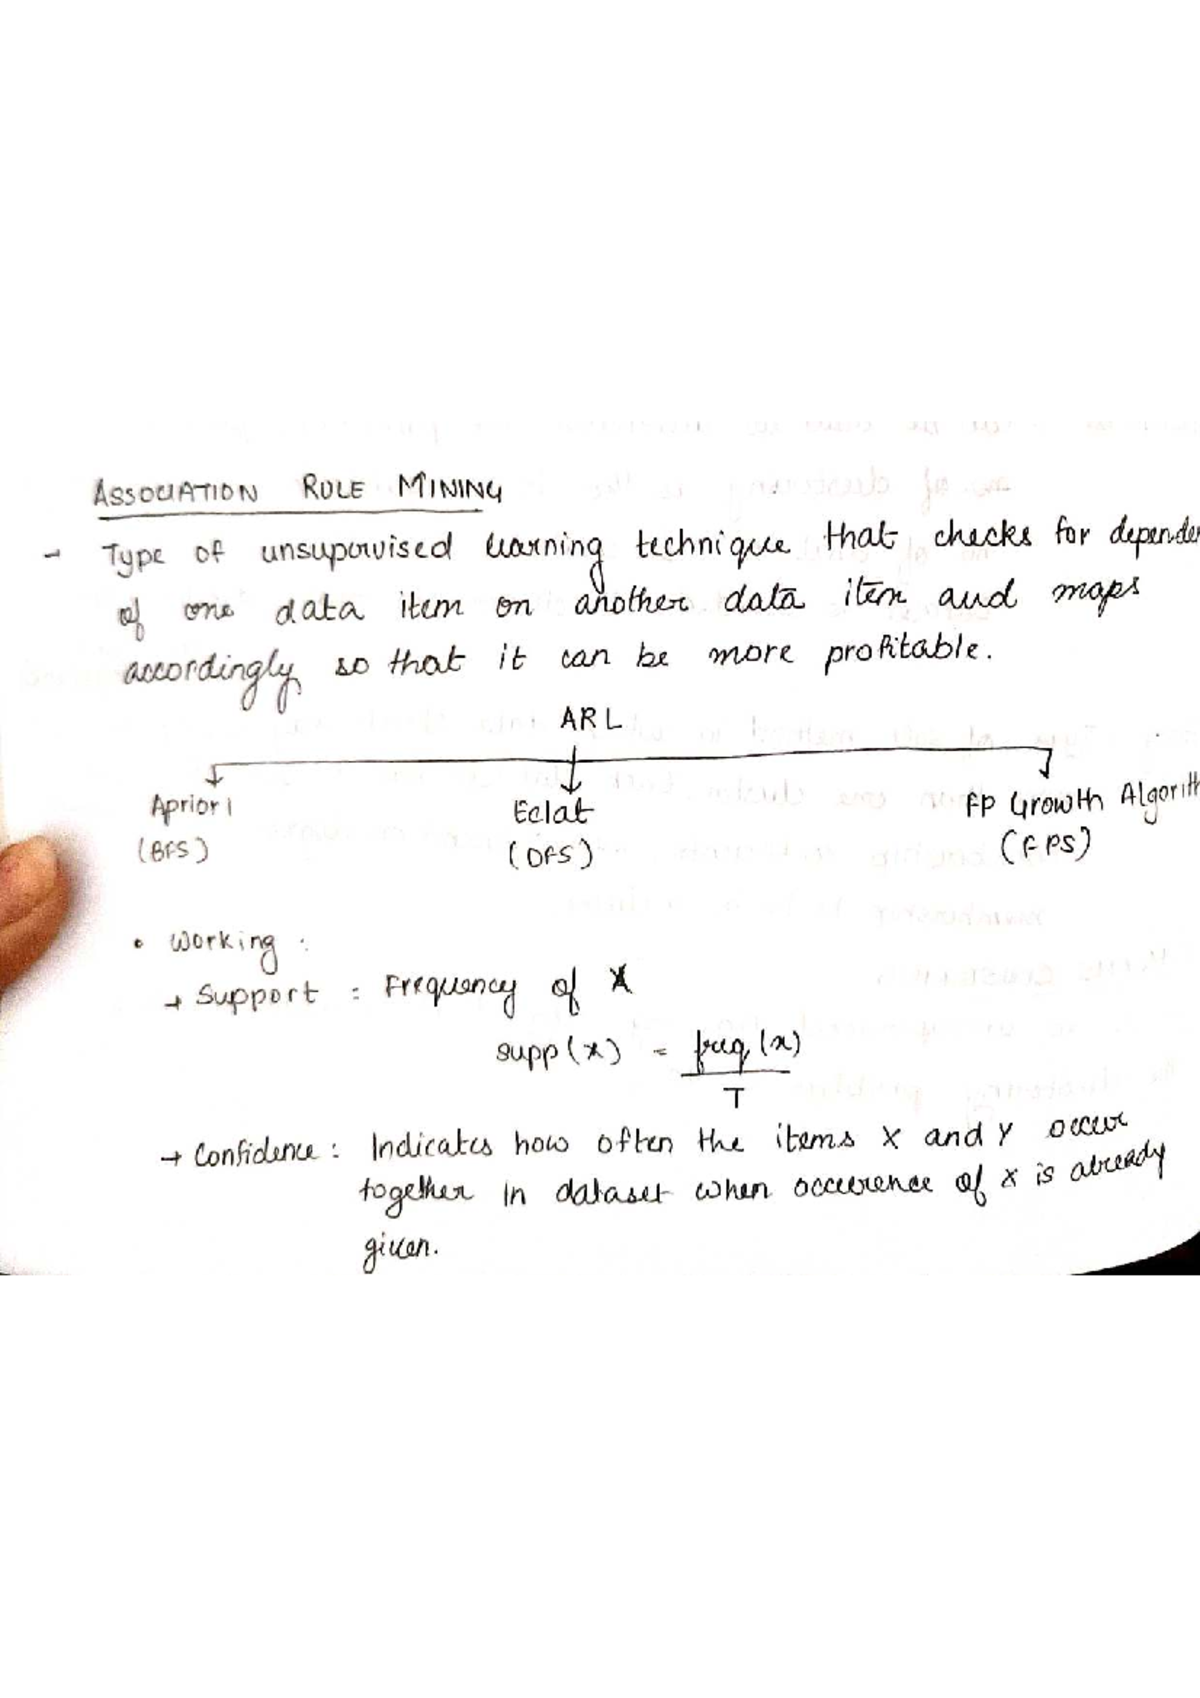 ASSOCIATION RULE MINING
- Type of unsupervised learning technique that checks for depende
of one data item on another data item and maps
accordingly so that it can be more profitable.
ARL
Apriori Eclat FP Growth Algorith
(BFS) (DFS) (FPS)
• Working :
→ Support : Frequency of X
supp(x) = freq(x)
T
→ Confidence : Indicates how often the items X and Y occur
together in dataset when occurence of x is already
given.